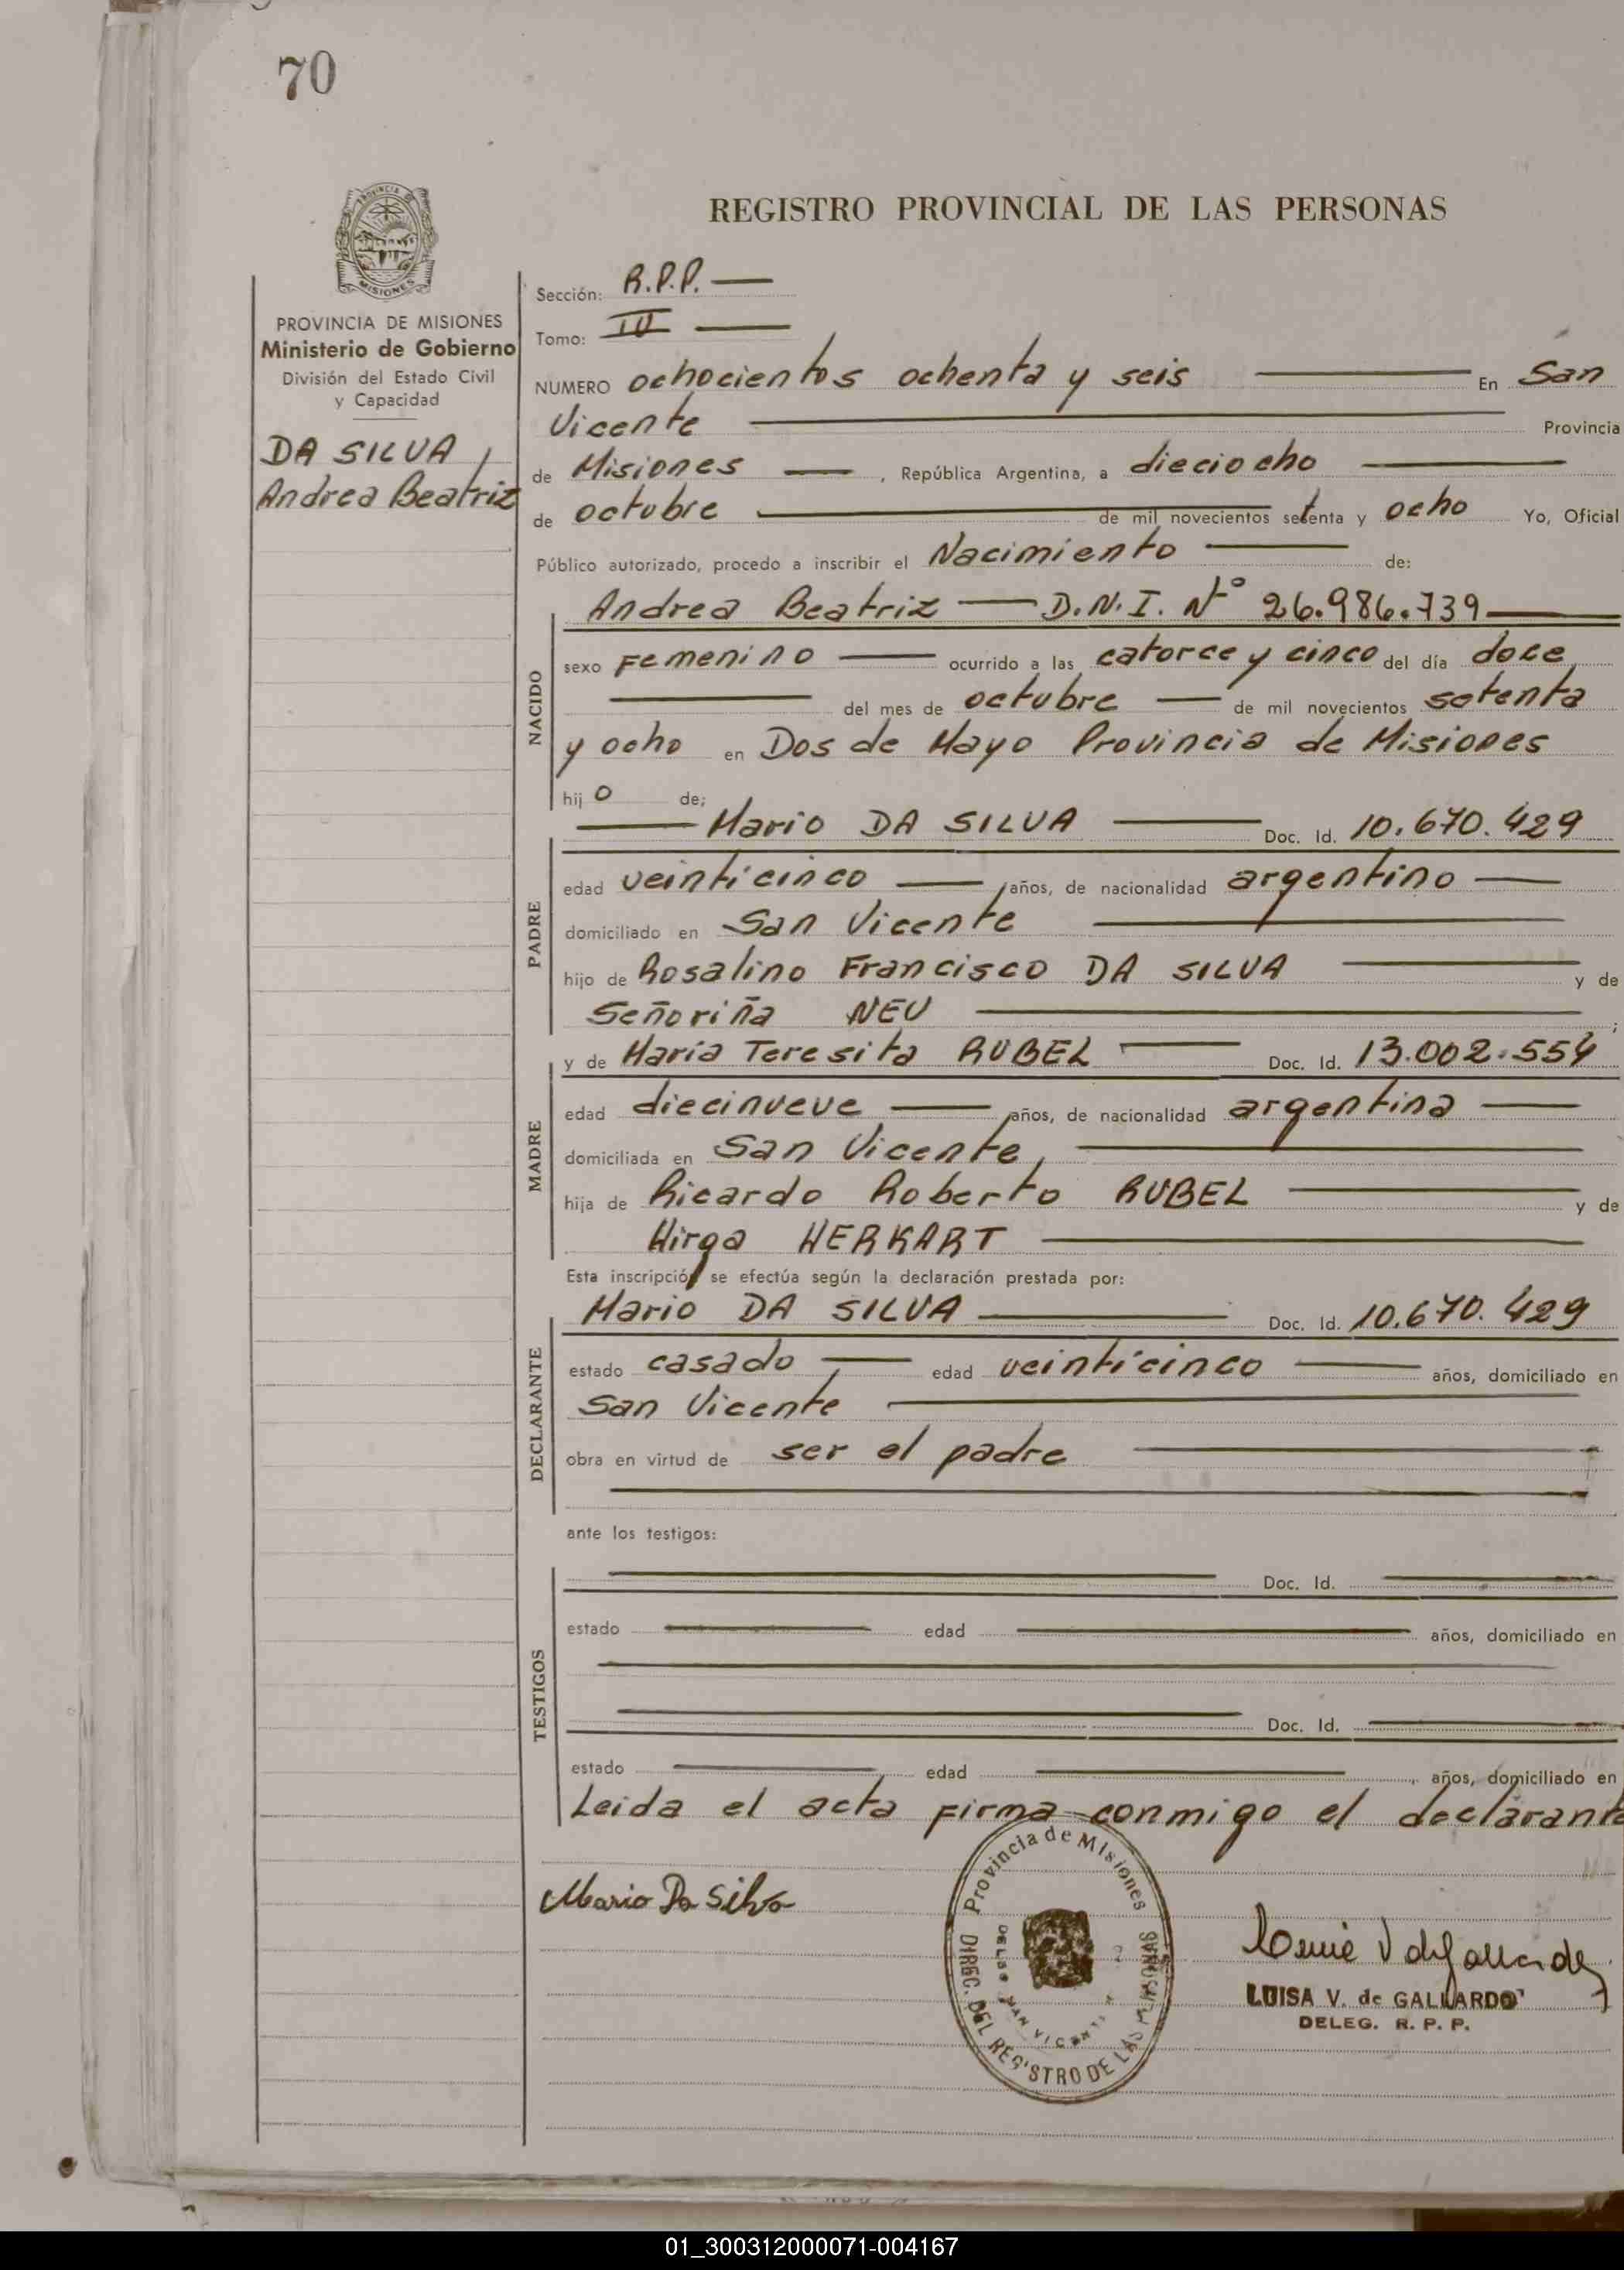 70
REGISTRO PROVINCIAL DE LAS PERSONAS
PROVINCIA
MISIONES
PROVINCIA DE MISIONES
Ministerio de Gobierno
División del Estado Civil
y Capacidad
DA SILVA,
Andrea Beatriz
Sección: R.P.P.
Tomo: III
NUMERO ochocientos ochenta y seis En San
Vicente Provincia
de Misiones , República Argentina, a dieciocho
de octubre de mil novecientos setenta y ocho Yo, Oficial
Público autorizado, procedo a inscribir el Nacimiento de:
Andrea Beatriz D.N.I. Nº 26.986.739
NACIDO
sexo Femenino ocurrido a las catorce y cinco del día doce
del mes de octubre de mil novecientos setenta
y ocho en Dos de Mayo Provincia de Misiones
hij o de;
Mario DA SILVA Doc. Id. 10.670.429
PADRE
edad veinticinco años, de nacionalidad argentino
domiciliado en San Vicente
hijo de Rosalino Francisco DA SILVA y de
Señoriña NEU ;
y de María Teresita RUBEL Doc. Id. 13.002.554
MADRE
edad diecinueve años, de nacionalidad argentina
domiciliada en San Vicente,
hija de Ricardo Roberto RUBEL y de
Hirga HERKART
Esta inscripción se efectúa según la declaración prestada por:
Mario DA SILVA Doc. Id. 10.670.429
DECLARANTE
estado casado edad veinticinco años, domiciliado en
San Vicente
obra en virtud de ser el padre
ante los testigos:
Doc. Id.
TESTIGOS
estado edad años, domiciliado en
Doc. Id.
estado edad años, domiciliado en
Leida el acta firma conmigo el declarante
Mario Da Silva
Provincia de Misiones
DIREC. DEL REGISTRO DE LAS PERSONAS
SAN VICENTE
LUISA V. de GALLARDO
DELEG. R. P. P.
01_300312000071-004167